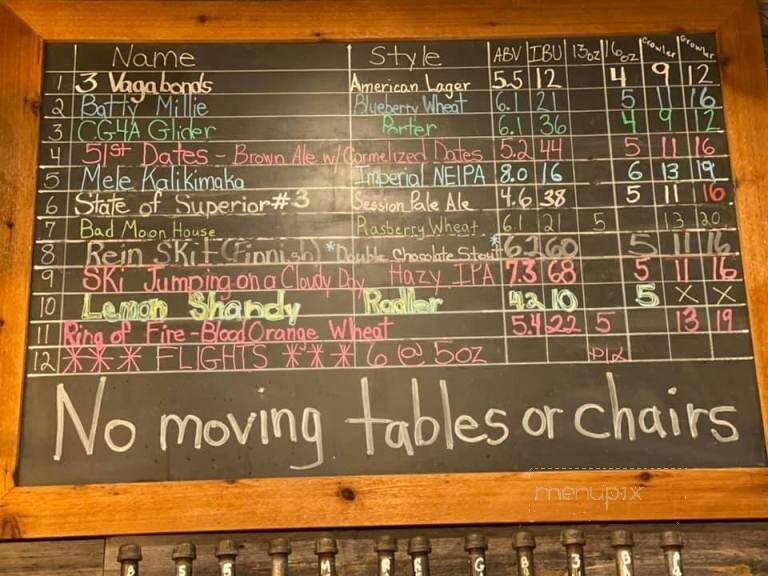 Name Style ABV IBU 13oz 16oz Crowler Growler
1 3 Vagabonds American Lager 5.5 12 4 9 12
2 Batty Millie Blueberry Wheat 6.1 21 5 11 16
3 CG4A Glider Porter 6.1 36 4 9 12
4 51st Dates - Brown Ale w/Carmelized Dates 5.2 44 5 11 16
5 Mele Kalikimaka Imperial NEIPA 8.0 16 6 13 19
6 State of Superior #3 Session Pale Ale 4.6 38 5 11 16
7 Bad Moon House Rasberry Wheat 6.1 21 5 13 20
8 Rein Skit (Finnish) *Double Chocolate Stout* 6.2 60 5 11 16
9 Ski Jumping on a Cloudy Day Hazy IPA 7.3 68 5 11 16
10 Lemon Shandy Radler 4.2 10 5 X X
11 Ring of Fire - Blood Orange Wheat 5.4 22 5 13 19
12 *** FLIGHTS *** 6 @ 5oz
No moving tables or chairs
menupix